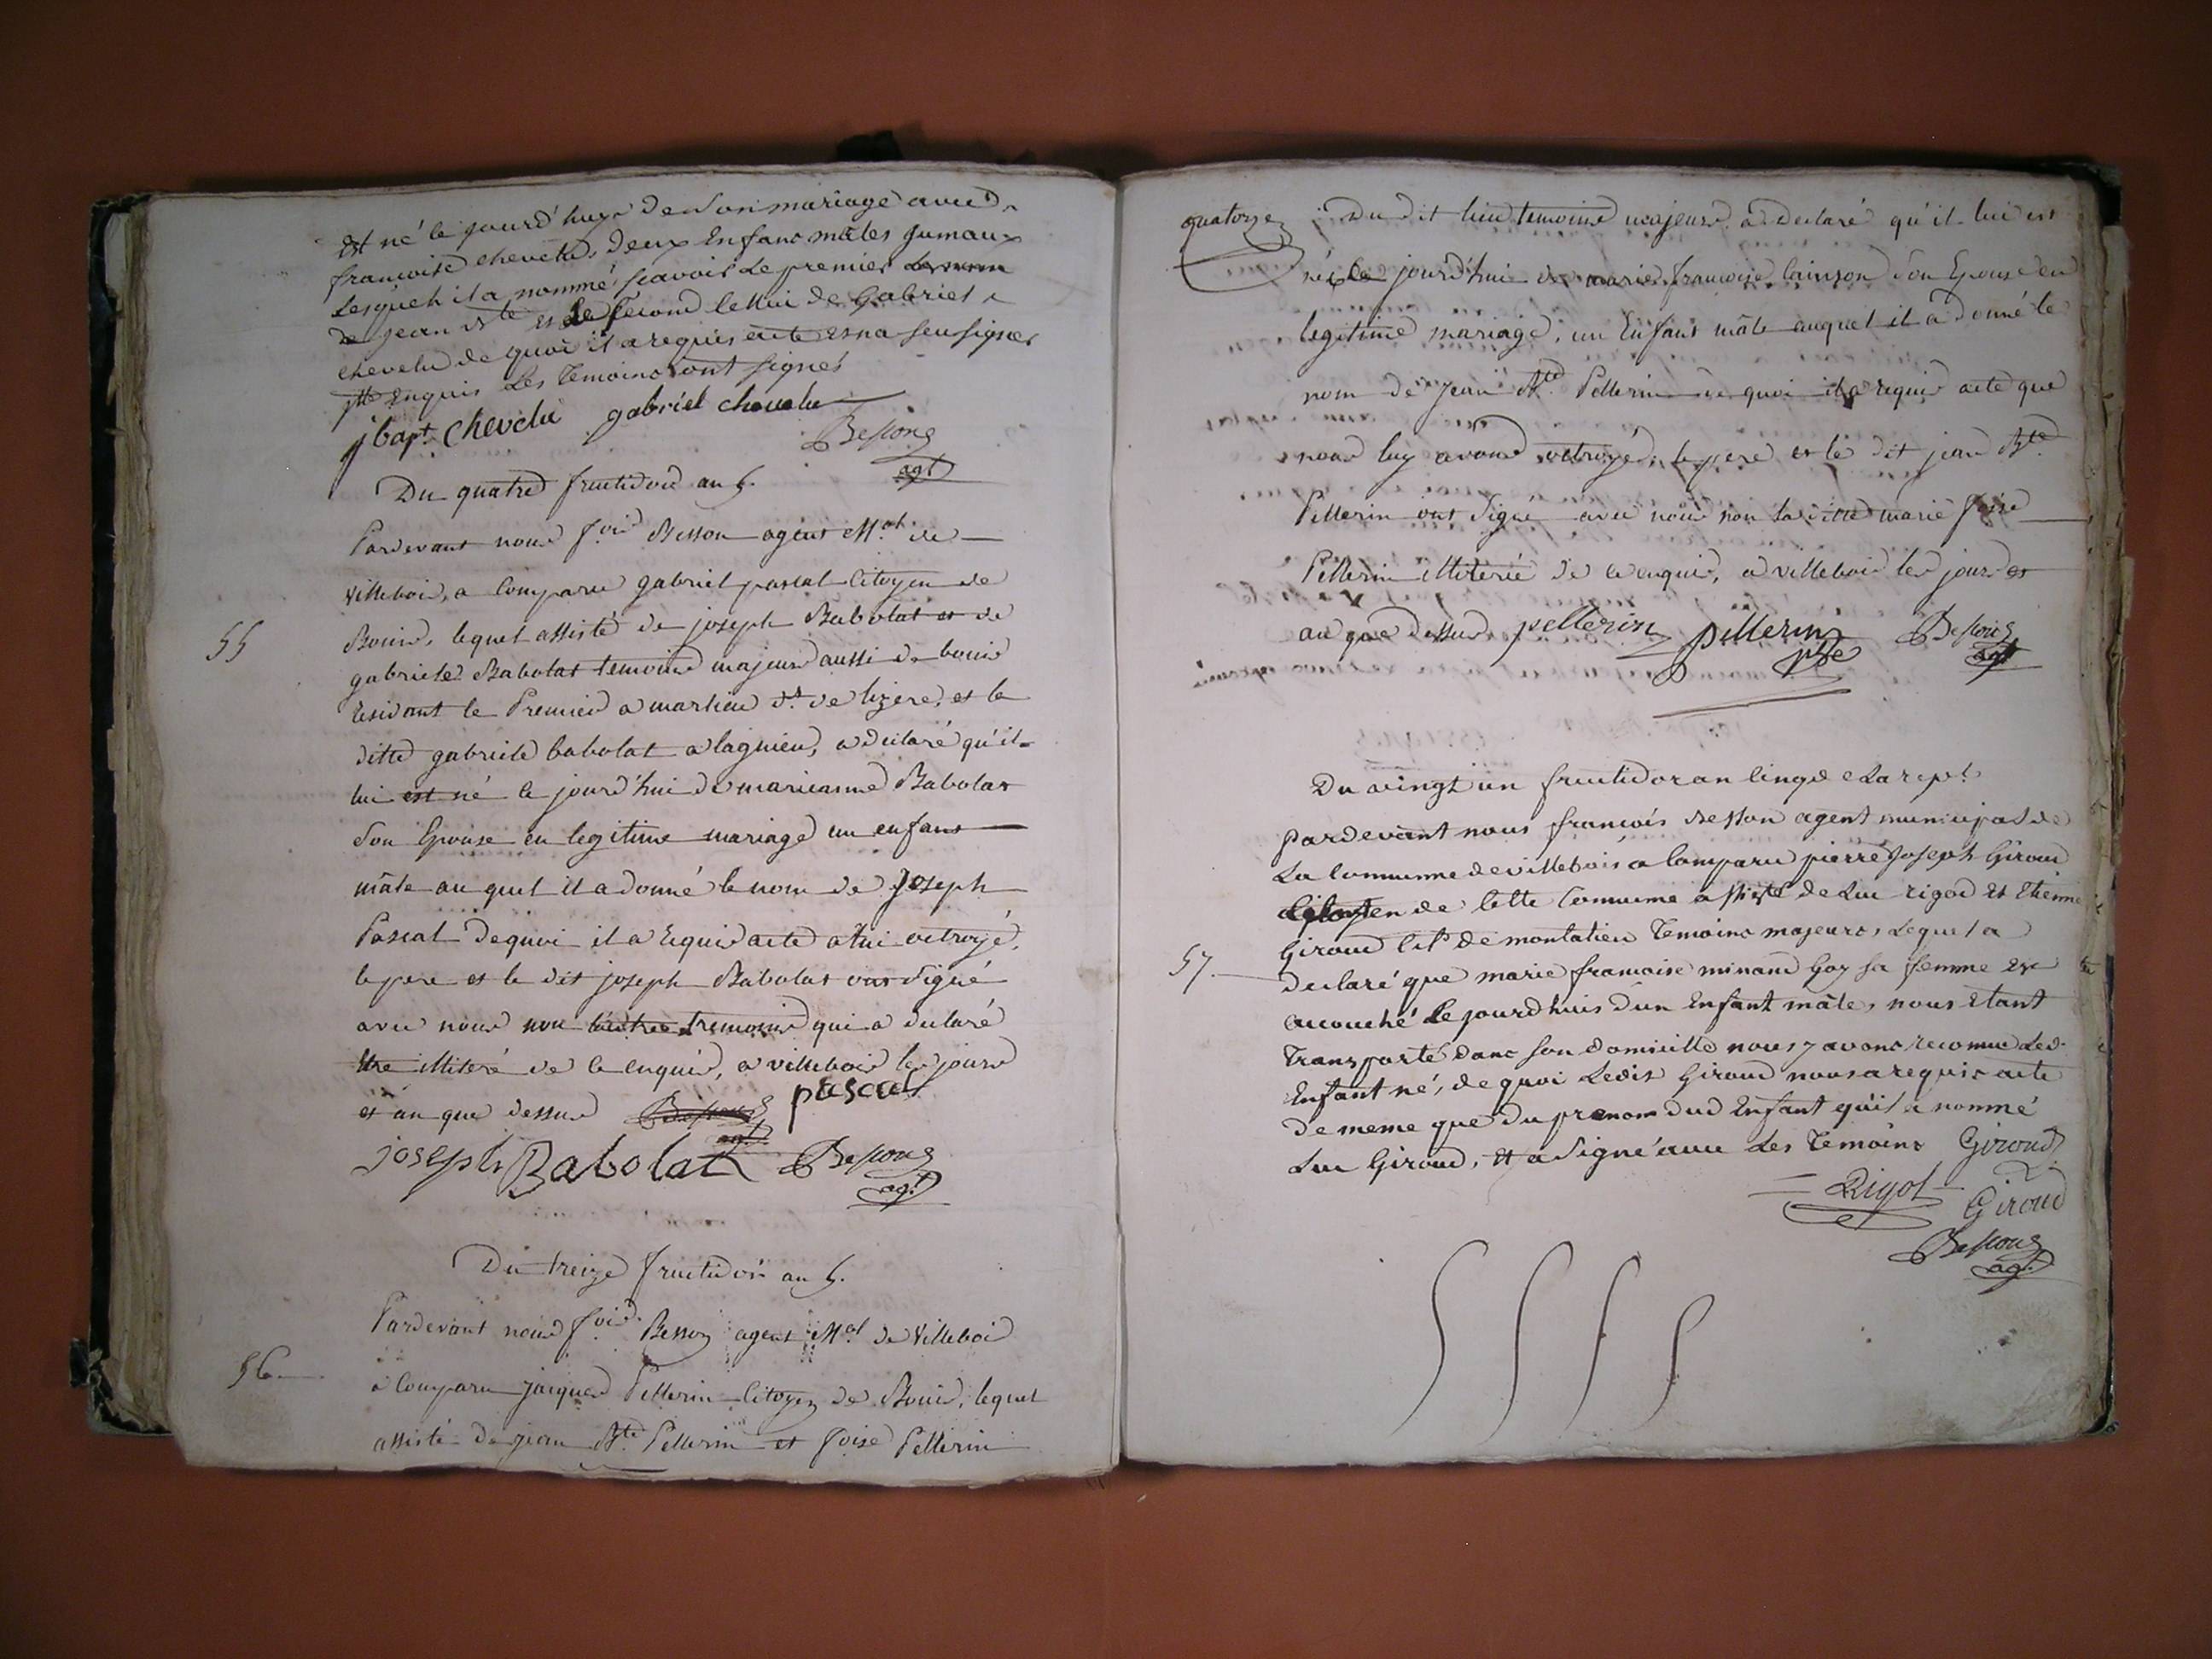 est né le jourd'huy de son mariage avec
francoise chevelu, deux Enfans mâles jumaux
Lesquels il a nommé scavoir Le premier
de jean Bte et le second celui de Gabriel
chevelu de quoi il a requis acte et n'a seu signer
enquis Les Temoins ont signés
j bapt. chevelu gabriel chevelu
Besson
agt
Du quatre fructidor an 5.
Pardevant nous f.ois Besson agent M.al de
villebois, a comparu gabriel pascal Citoyen de
55
Bouis, lequel assisté de joseph Babolat et de
gabriele Babolat temoins majeurs aussi de bouis
residant le Premier a marlieu d.t de lizere, et la
ditte gabriele babolat a lagnieu, a declaré qu'il
lui est né le jourd'hui de marieanne Babolat
son Epouse en legitime mariage un enfant
mâle au quel il a donné le nom de Joseph
Pascal de quoi il a requis acte a lui octroyé,
le pere et le dit joseph Babolat ont signé
avec nous non l'autre temoins qui a declaré
être illiteré de ce enquis, a villebois les jours
et an que dessus Besson agt pascal
joseph Babolat Besson
agt
Du treize fructidor an 5.
Pardevant nous f.ois Besson agent M.al de Villebois
56
a comparu jacques Pellerin Citoyen de Bouis, lequel
assisté de jean Bte Pellerin et foise Pellerin
quatorze
Du dit lieu temoins majeurs a declaré qu'il lui est
né le jourd'hui de marie francoise son Epouse en
legitime mariage, un Enfant mâle auquel il a donné le
nom de jean Bte Pellerin de quoi il a requis acte que
nous luy avons octroyé, le pere et le dit jean Bte
Pellerin ont signé avec nous non la ditte marie foise
Pellerin illiterée de ce enquis, a villebois les jours et
an que dessus pellerin pellerin Besson
agt
Du vingt un fructidor an cinq de La rep.
pardevant nous françois Besson agent municipal de
La Commune de villebois a Comparu pierre Joseph Giroud
Citoyen de Cette Commune assisté de Luc rigod et Etienne
Giroud Cit. de montalieu Temoins majeurs, Lequel a
57
declaré que marie francoise minand Goy sa femme est
accouché Le jourd'huis d'un Enfant mâle, nous etant
Transporté dans son domicille nous y avons reconnu Led.
Enfant né, de quoi Ledit Giroud nous a requis acte
de meme que du prenom dud Enfant qu'il a nommé
Luc Giroud, et a signé avec Les Temoins Giroud
Rigot
Giroud
Besson
agt